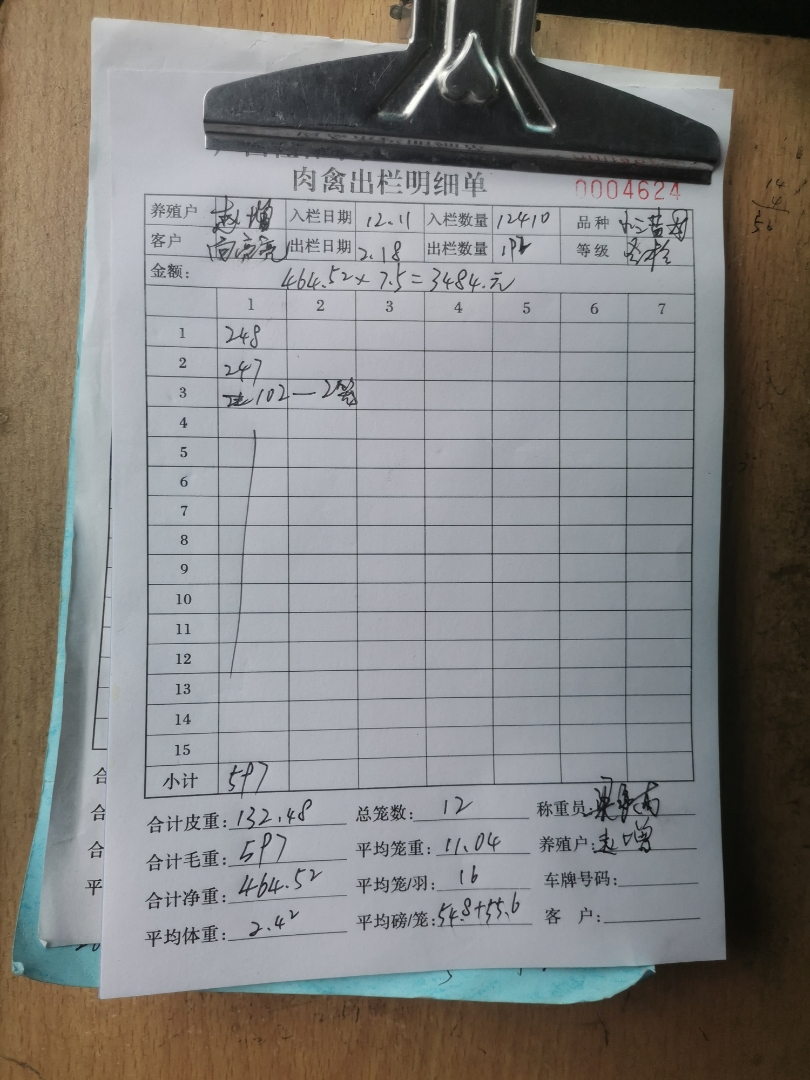 肉禽出栏明细单
0004624
养殖户 赵增 入栏日期 12.11 入栏数量 12410 品种
客户 出栏日期 2.18 出栏数量 192 等级
金额: 464.52×7.5=3484.元
1 2 3 4 5 6 7
1 248
2 247
3 102—2笼
4
5
6
7
8
9
10
11
12
13
14
15
小计 597
合计皮重: 132.48 总笼数: 12 称重员:
合计毛重: 597 平均笼重: 11.04 养殖户: 赵增
合计净重: 464.52 平均笼/羽: 16 车牌号码:
平均体重: 2.42 平均磅/笼: 54.8+55.6 客 户:
14
4
56
合
合
合
平